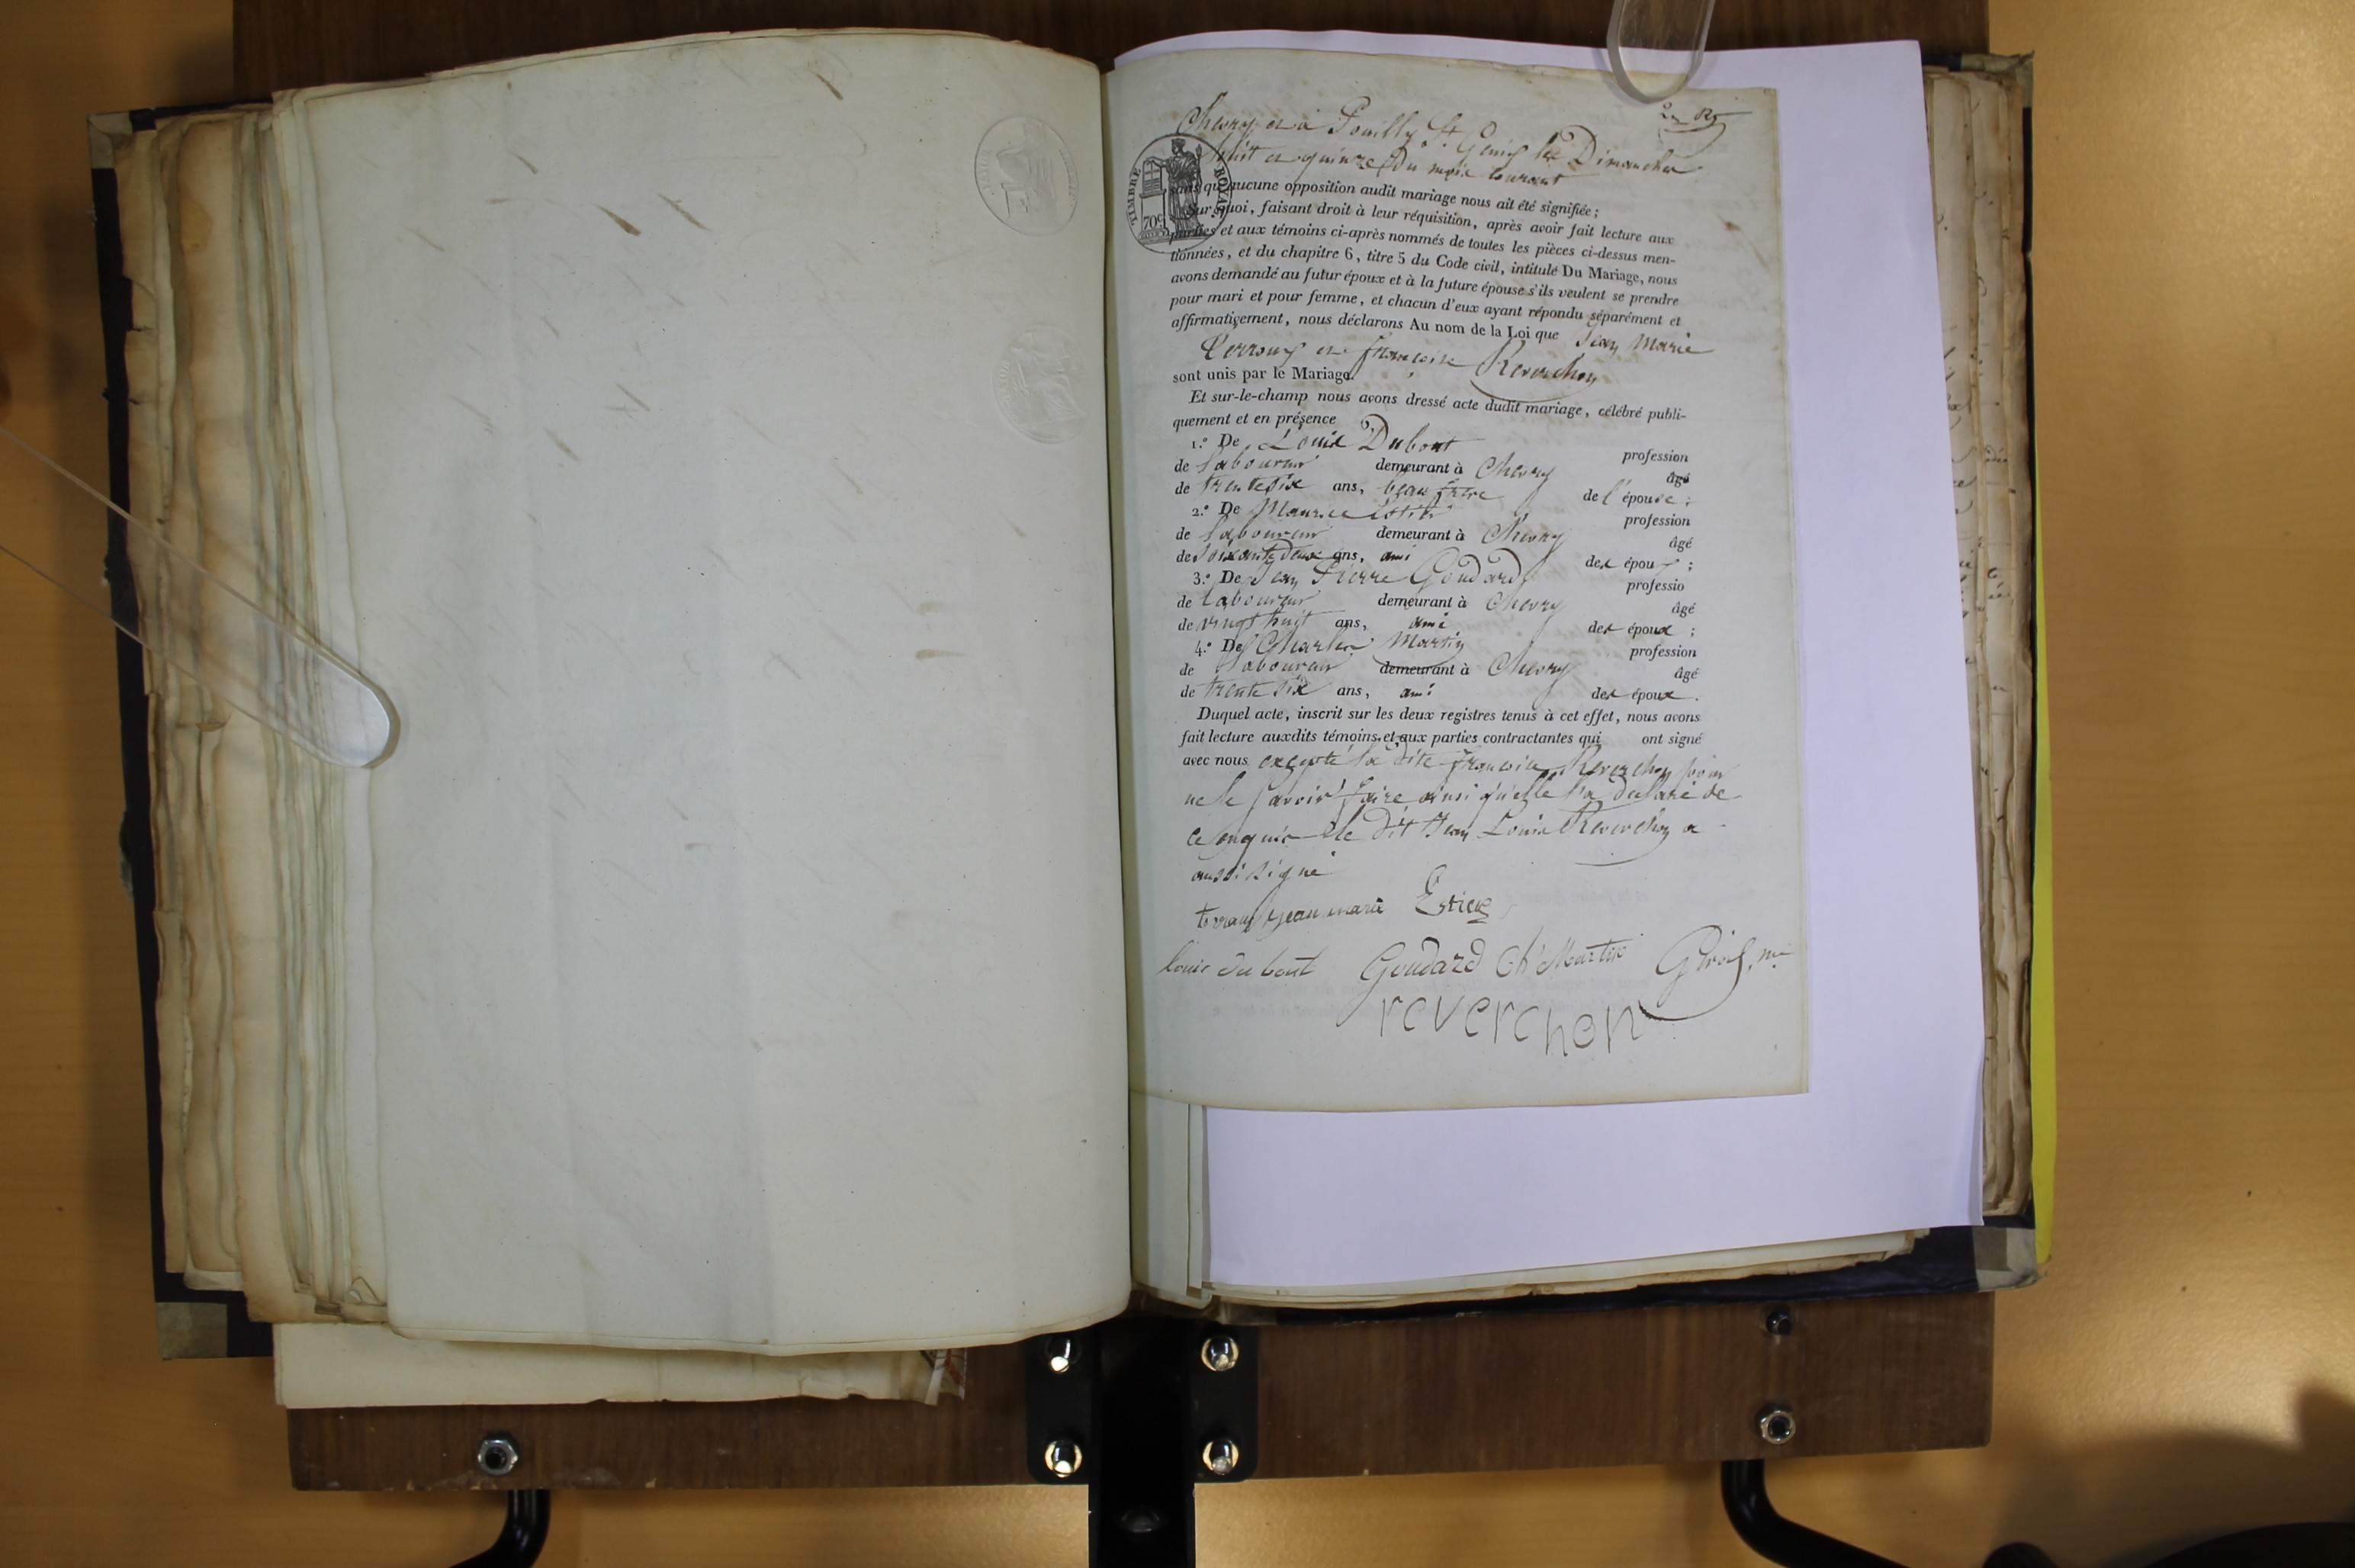 Chevry et à Pouilly St Genis les Dimanches
huit et quinze du mois courant
TIMBRE ROYAL
70c
sans qu'aucune opposition audit mariage nous ait été signifiée ;
Sur quoi, faisant droit à leur réquisition, après avoir fait lecture aux
parties et aux témoins ci-après nommés de toutes les pièces ci-dessus men-
tionnées, et du chapitre 6, titre 5 du Code civil, intitulé Du Mariage, nous
avons demandé au futur époux et à la future épouse s'ils veulent se prendre
pour mari et pour femme, et chacun d'eux ayant répondu séparément et
affirmativement, nous déclarons Au nom de la Loi que Jean Marie
et françoise Reverchon
sont unis par le Mariage.
Et sur-le-champ nous avons dressé acte dudit mariage, célébré publi-
quement et en présence
1.º De Louis Dubout profession
de laboureur demeurant à Chevry âgé
de trente six ans, beau frère de l'épouse ;
2.º De Maurice profession
de laboureur demeurant à Chevry âgé
de soixante deux ans, ami des époux ;
3.º De Jean Pierre Goudard professio
de laboureur demeurant à Chevry âgé
de vingt huit ans, ami des époux ;
4.º De Charles Martin profession
de laboureur demeurant à Chevry âgé
de trente six ans, ami des époux .
Duquel acte, inscrit sur les deux registres tenus à cet effet, nous avons
fait lecture auxdits témoins et aux parties contractantes qui ont signé
avec nous excepté la dite françoise Reverchon pour
ne le savoir faire ainsi qu'elle l'a déclaré de
ce enquis le dit Jean Louis Reverchon a
aussi signé
jean marie Estier
louis du bout Goudard Ch Martin Girod, me
reverchon